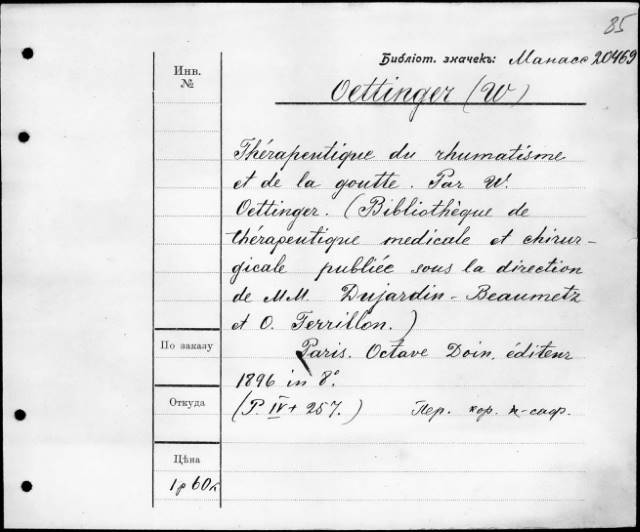 85
Библіот. значекъ: Манасс 20469
Инв.
№
Oettinger (W)
Thérapeutique du rhumatisme
et de la goutte. Par W.
Oettinger. (Bibliothèque de
thérapeutique medicale et chirur-
gicale publiée sous la direction
de MM. Dujardin-Beaumetz
et O. Terrillon.)
По заказу
Paris. Octave Doin, éditeur
1896 in 8°.
Откуда
(P. IV + 257.) Пер. кор. к-саф.
Цѣна
1р 60к